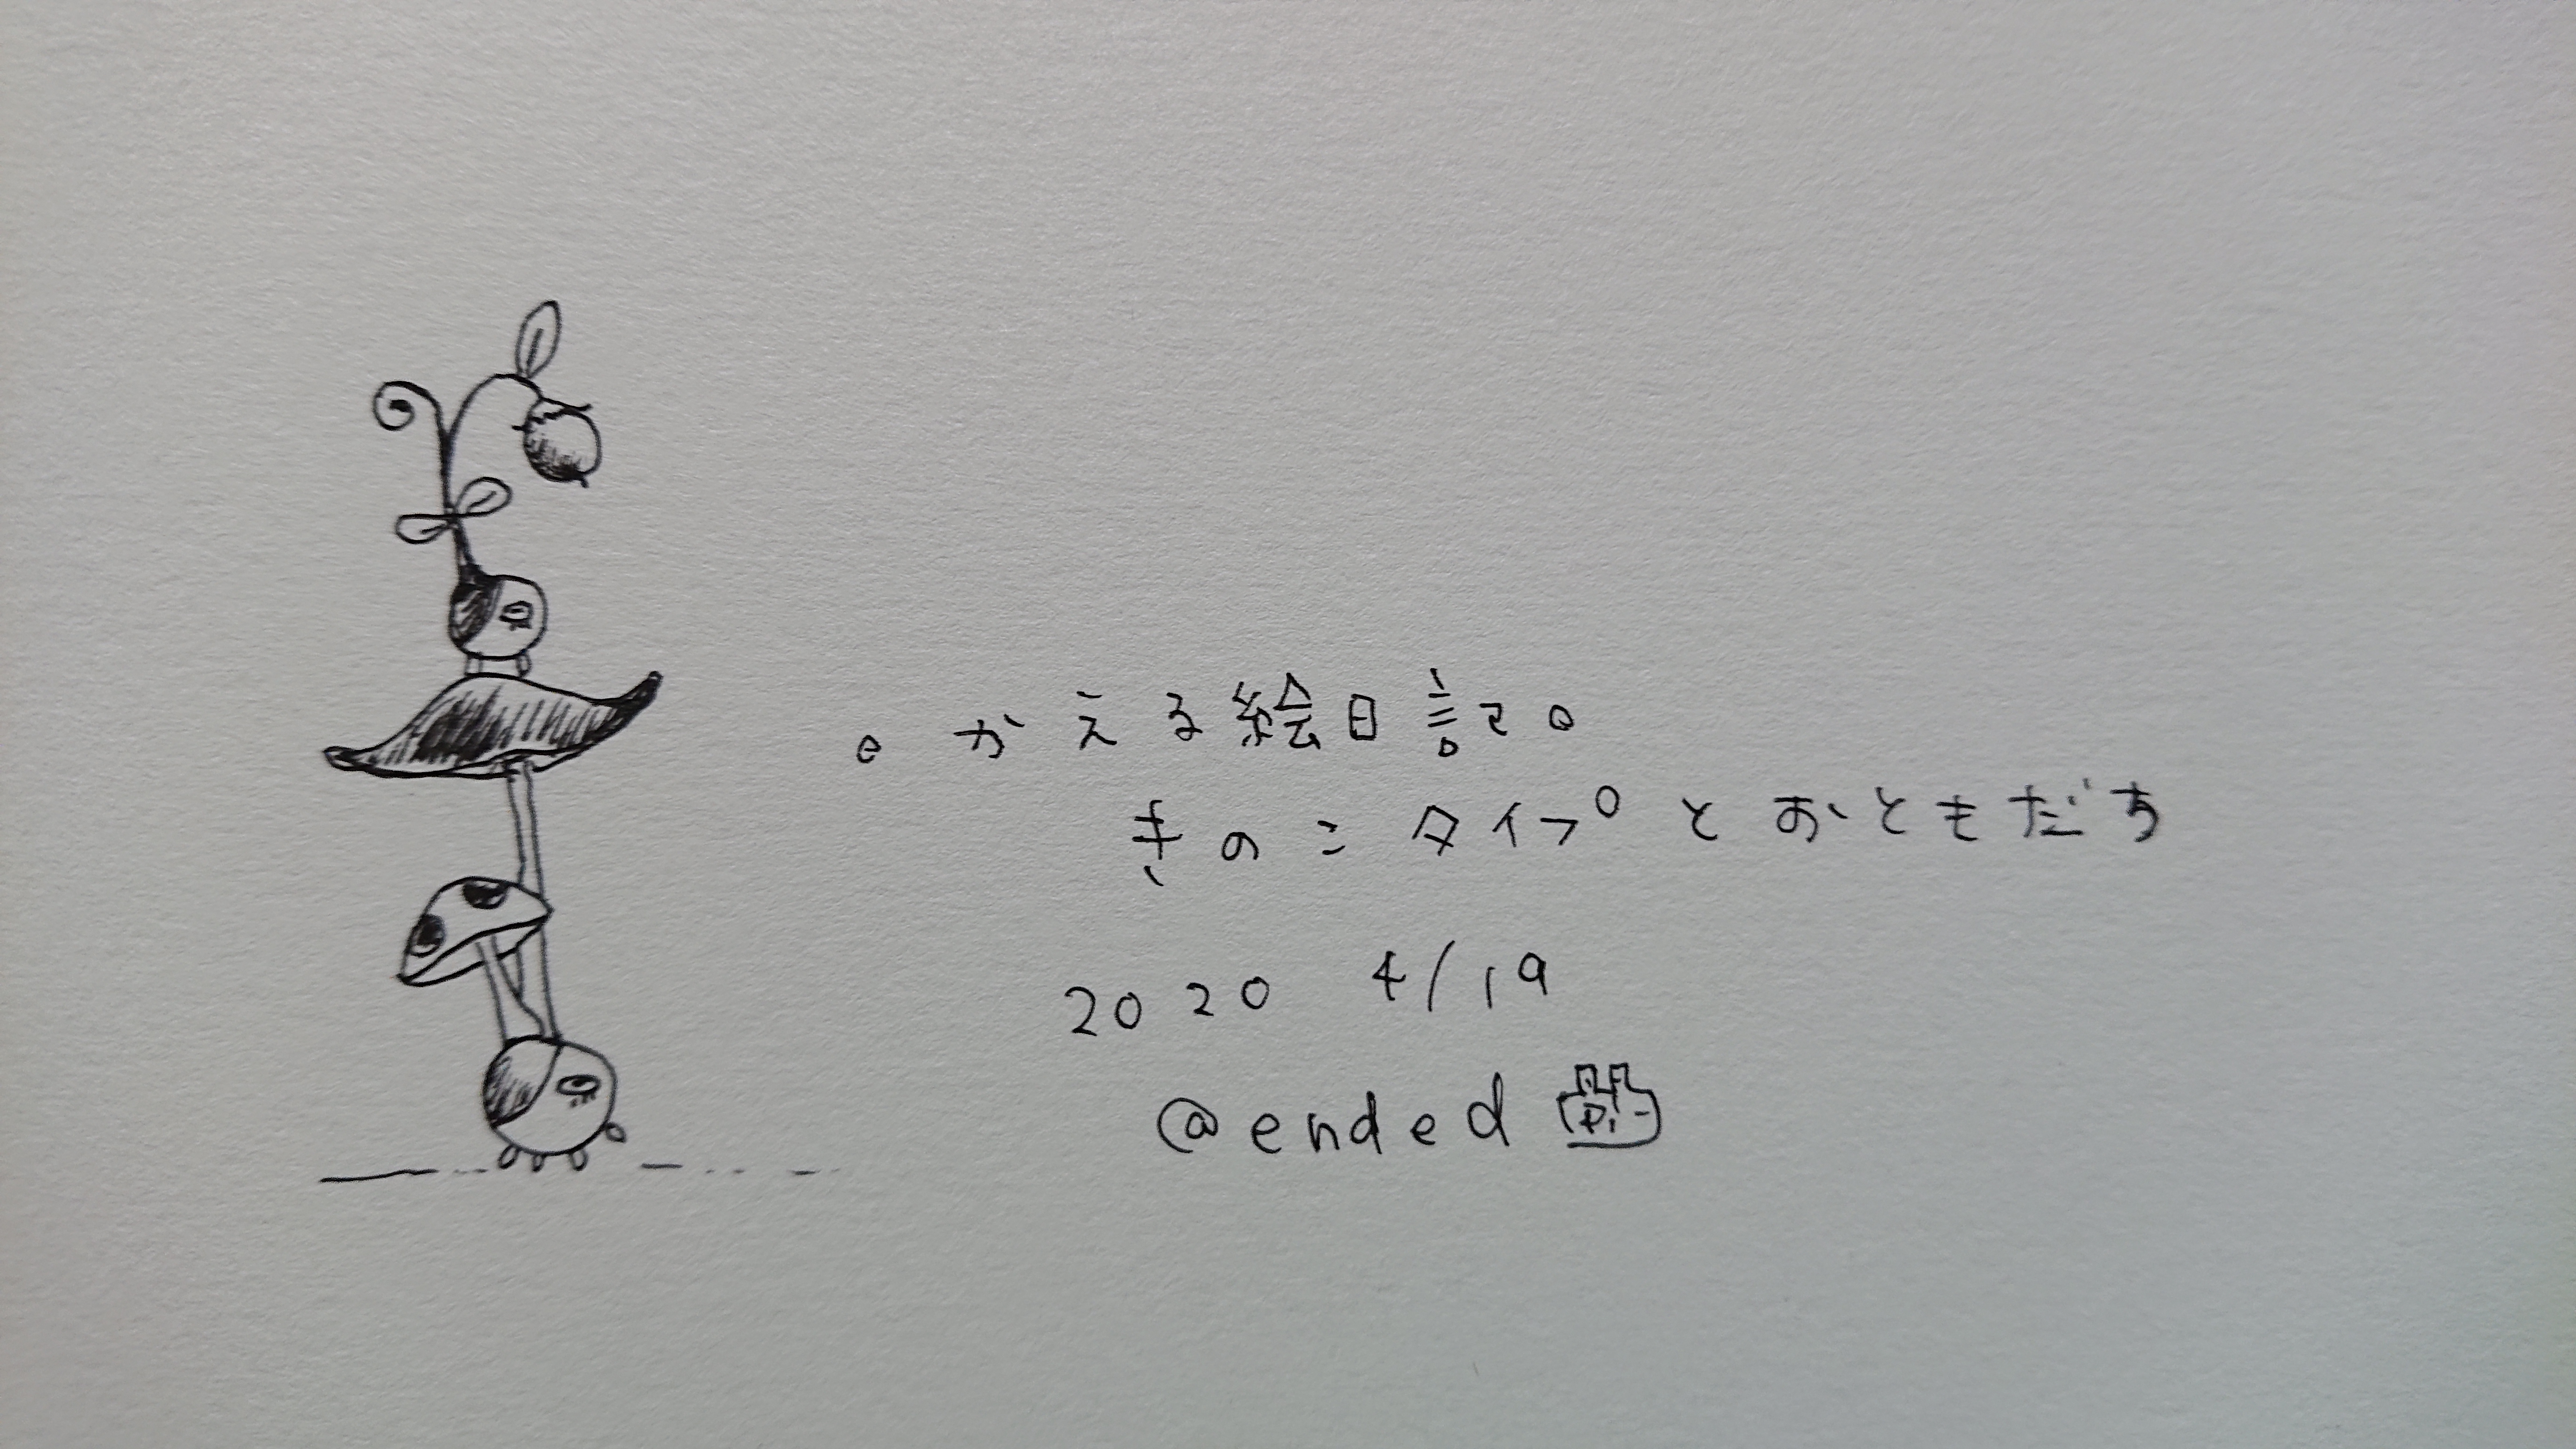 。かえる絵日記。
きのこタイプとおともだち
2020 4/19
@ended